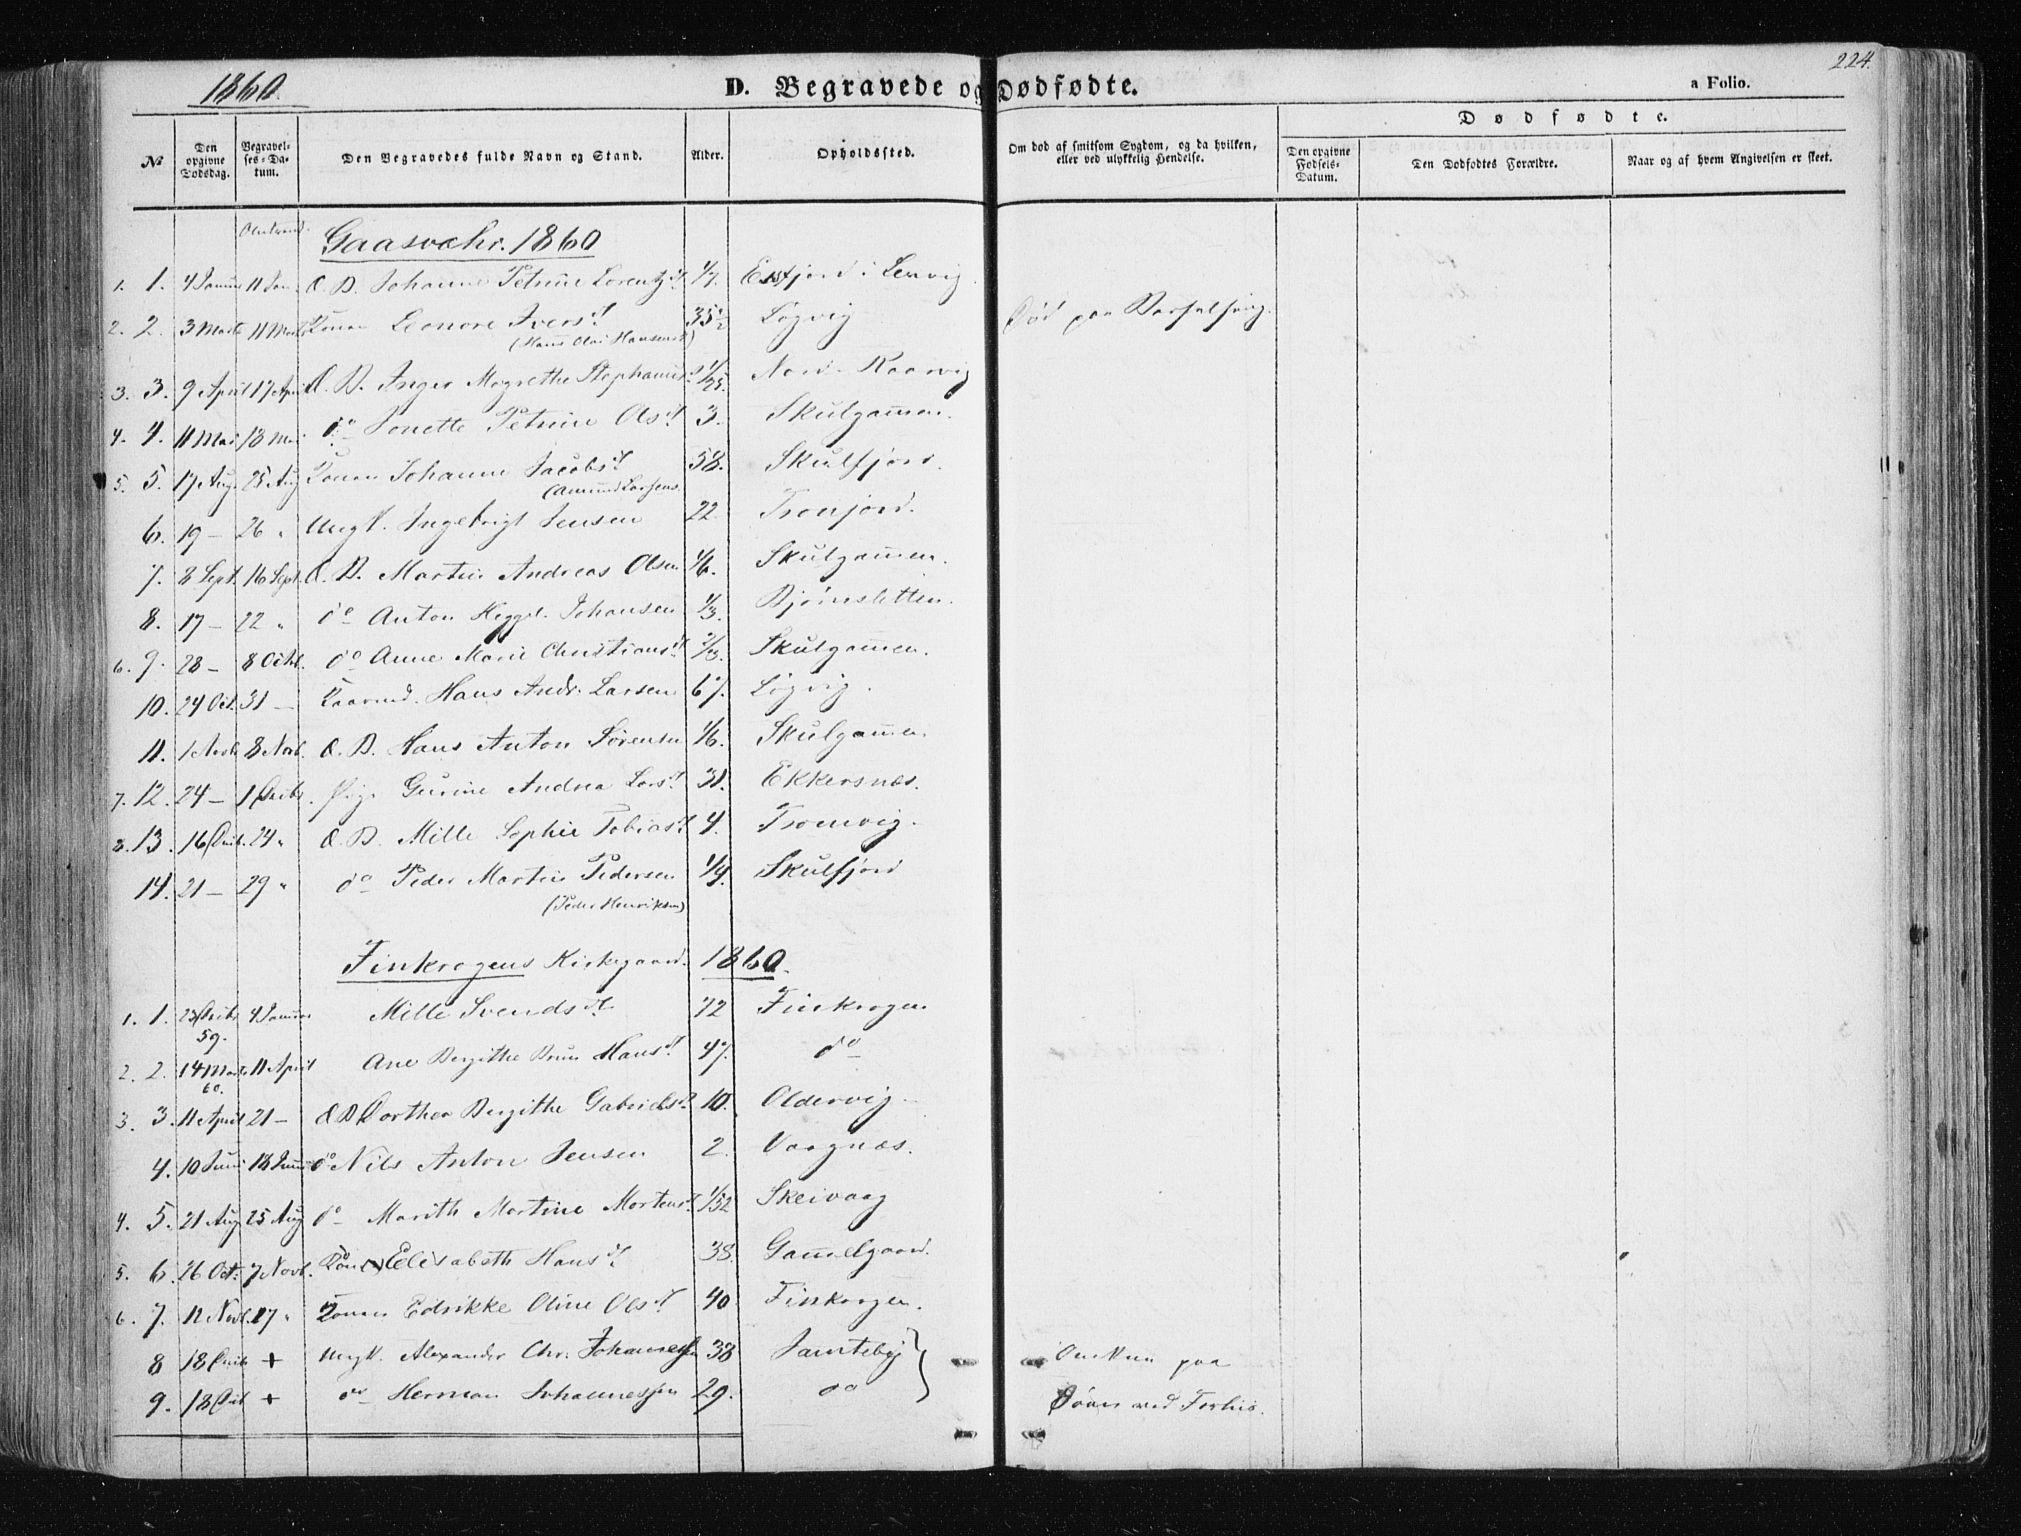 1860.
D. Begravede og Dødfødte.
a Folio.
224.
№
Den opgivne Dødsdag.
Begravelses-Datum.
Den Begravedes fulde Navn og Stand.
Alder.
Opholdssted.
Om død af smitsom Sygdom, og da hvilken, eller ved ulykkelig Hendelse.
Dødfødte.
Den opgivne Fødsels-Datum.
Den Dødfødtes Forældre.
Naar og af hvem Angivelsen er skeet.
Gaasvær. 1860
1. 1. 4 Januar 11 Jan. D. B. Johanne Petrine Lorentzd. 1/7. Estfjord i Lenvig
2. 2. 3 Marts 11 Marts Konen Leonore Iversd. 35 1/2 Løgvig Død paa Barselseng.
(Hans Olai Hansens)
3. 3. 9 April 17 April D. B. Inger Magrethe Stephansd. 1/25. Nord-Kaarvig
4. 4. 11 Mai 18 Mai do Jonette Petrine Olsd. 3. Skulgammen.
5. 5. 17 Aug. 25 Aug Konen Johanne Jacobsd. 58. Skulfjord.
(Amund Larsens
6. 19 - 26 " Ungk. Ingebrigt Jensen 22. Tronjord.
7. 8 Sept. 16 Sept. D. B. Martin Andreas Olsen 1/6. Skulgammen.
8. 17 - 22 " do Anton Heggel. Johansen 1/3. Bjørnsletten.
6. 9. 28 - 8 Octb. do Anne Marie Christiansd. 2/3. Skulgammen.
10. 24 Oct. 31 - Kaarmd. Hans Andr. Larsen 67. Løgvig.
11. 1 Novb 8 Novb. D. B. Hans Anton Sørensen 1/6. Skulgammen.
7. 12. 24 - 1 Decbr. Pige Gurine Andrea Larsd. 31. Ekkersnæs.
8. 13. 16 Decb. 24 " D. B. Mille Sophie Tobiasd. 4. Tromvig.
14. 21 - 29 " do Peder Martin Pedersen 1/4. Skulfjord
(Peder Henriksen)
Finkrogens Kirkegaard. 1860.
1. 1. 23 Decbr 59. 4 Januar Mille Svendsd. 72 Finkrogen
2. 2. 14 Marts 60. 11 April Ane Bergithe Brun Hansd. 47. do
3. 3. 11 April 21 - D B Dorthea Bergithe Gabrielsd. 10. Oldervig
4. 10 Juni 18 Juni do Nils Anton Jensen 2. Vaagnæs.
4. 5. 21 Aug 25 Aug do Marith Martine Mortensd. 1/52 Skeivaag
5. 6. 26 Oct. 7 Novb. Konen Elisabeth Hansd. 38. Gammelgaard.
6. 7. 12 Novb. 17 " Konen Edrikke Oline Olsd. 40 Finkrogen.
8 18 Decbr + Ungk. Alexander Chr. Johannessen 38 Jamteby Omkom paa
9. 18 Decb + do Herman Johannessen 29. do Søen ved Forliis.